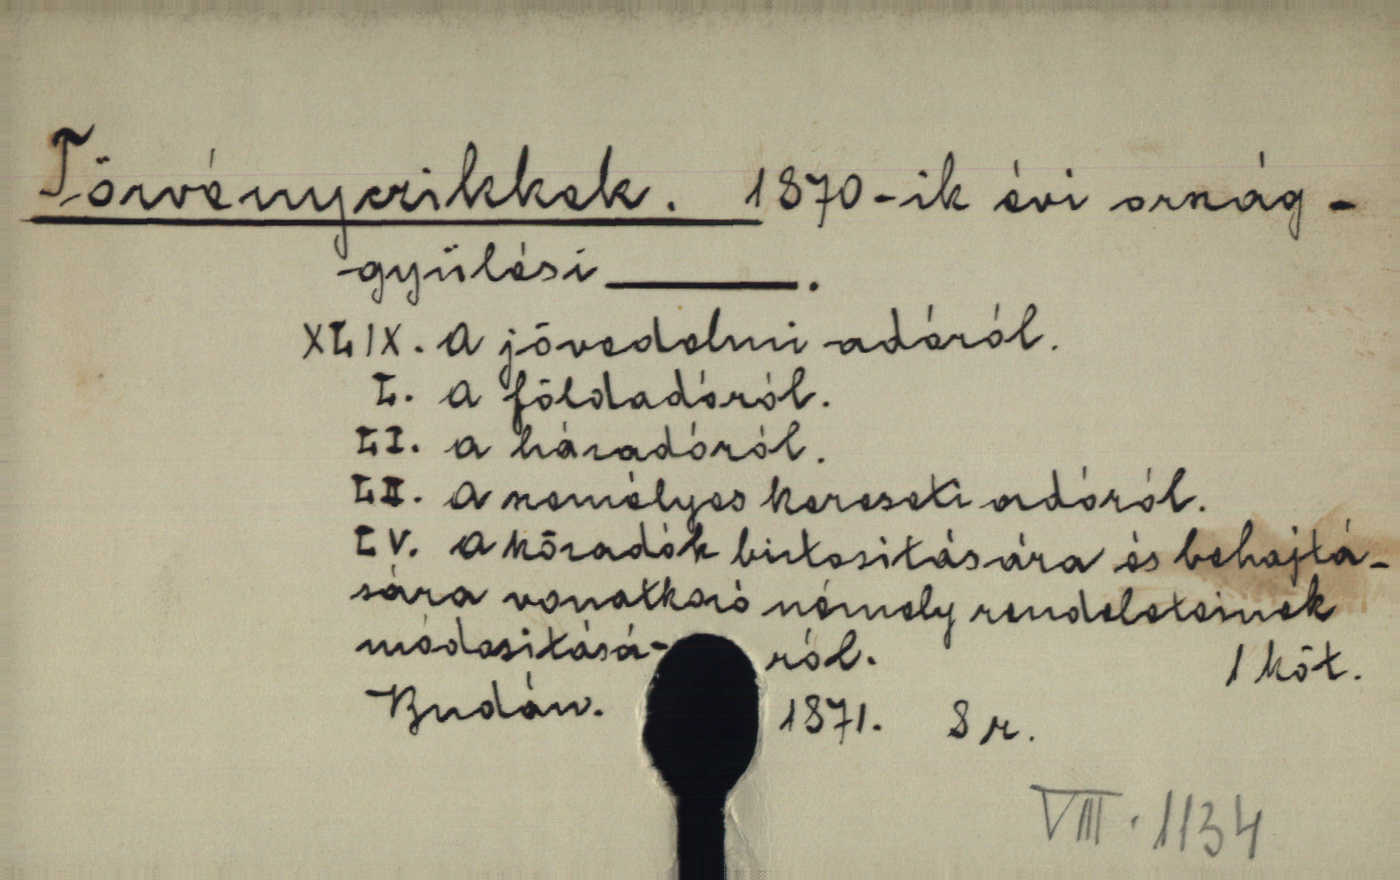 Törvényczikkek. 1870-ik évi ország-
gyülési ———.
XLIX. A jövedelmi adóról.
L. A földadóról.
LI. a házadóról.
LII. A személyes kereseti adóról.
LV. A közadók biztositására és behajtá-
sára vonatkozó némely rendeleteinek
módositásá-ról. 1 köt.
Budán. 1871. 8 r.
VIII. 1134